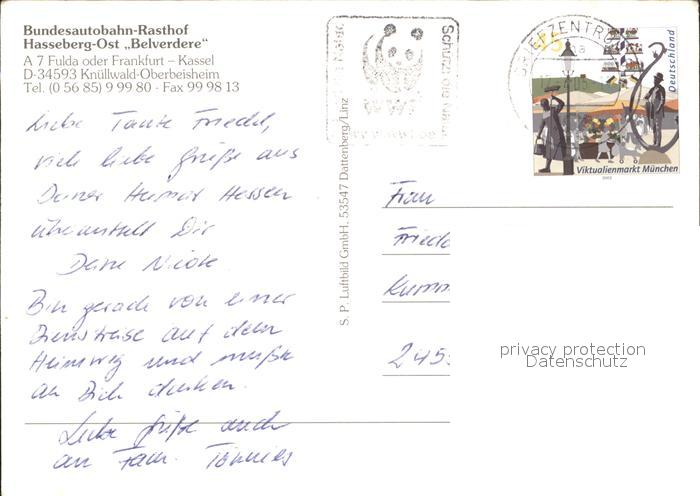 Bundesautobahn-Rasthof
Hasseberg-Ost „Belverdere“
A 7 Fulda oder Frankfurt – Kassel
D-34593 Knüllwald-Oberbeisheim
Tel. (0 56 85) 9 99 80 · Fax 99 98 13
Liebe Tante Friedel,
viele liebe Grüße aus
Deiner Heimat Hessen
übermittelt Dir
Deine Nicole.
Bin gerade von einer
Dienstreise auf dem
Heimweg und mußte
an Dich denken.
Liebe Grüße auch
an Fam. Tönnies
S. P. Luftbild GmbH. 53547 Dattenberg/Linz
Schützt die Natur
WWF
BRIEFZENTRUM
Deutschland
Viktualienmarkt München
2003
Frau
Friede
Kumm
245
privacy protection
Datenschutz